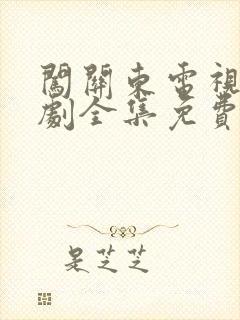 闖關東電視
劇全集免費
是芝芝